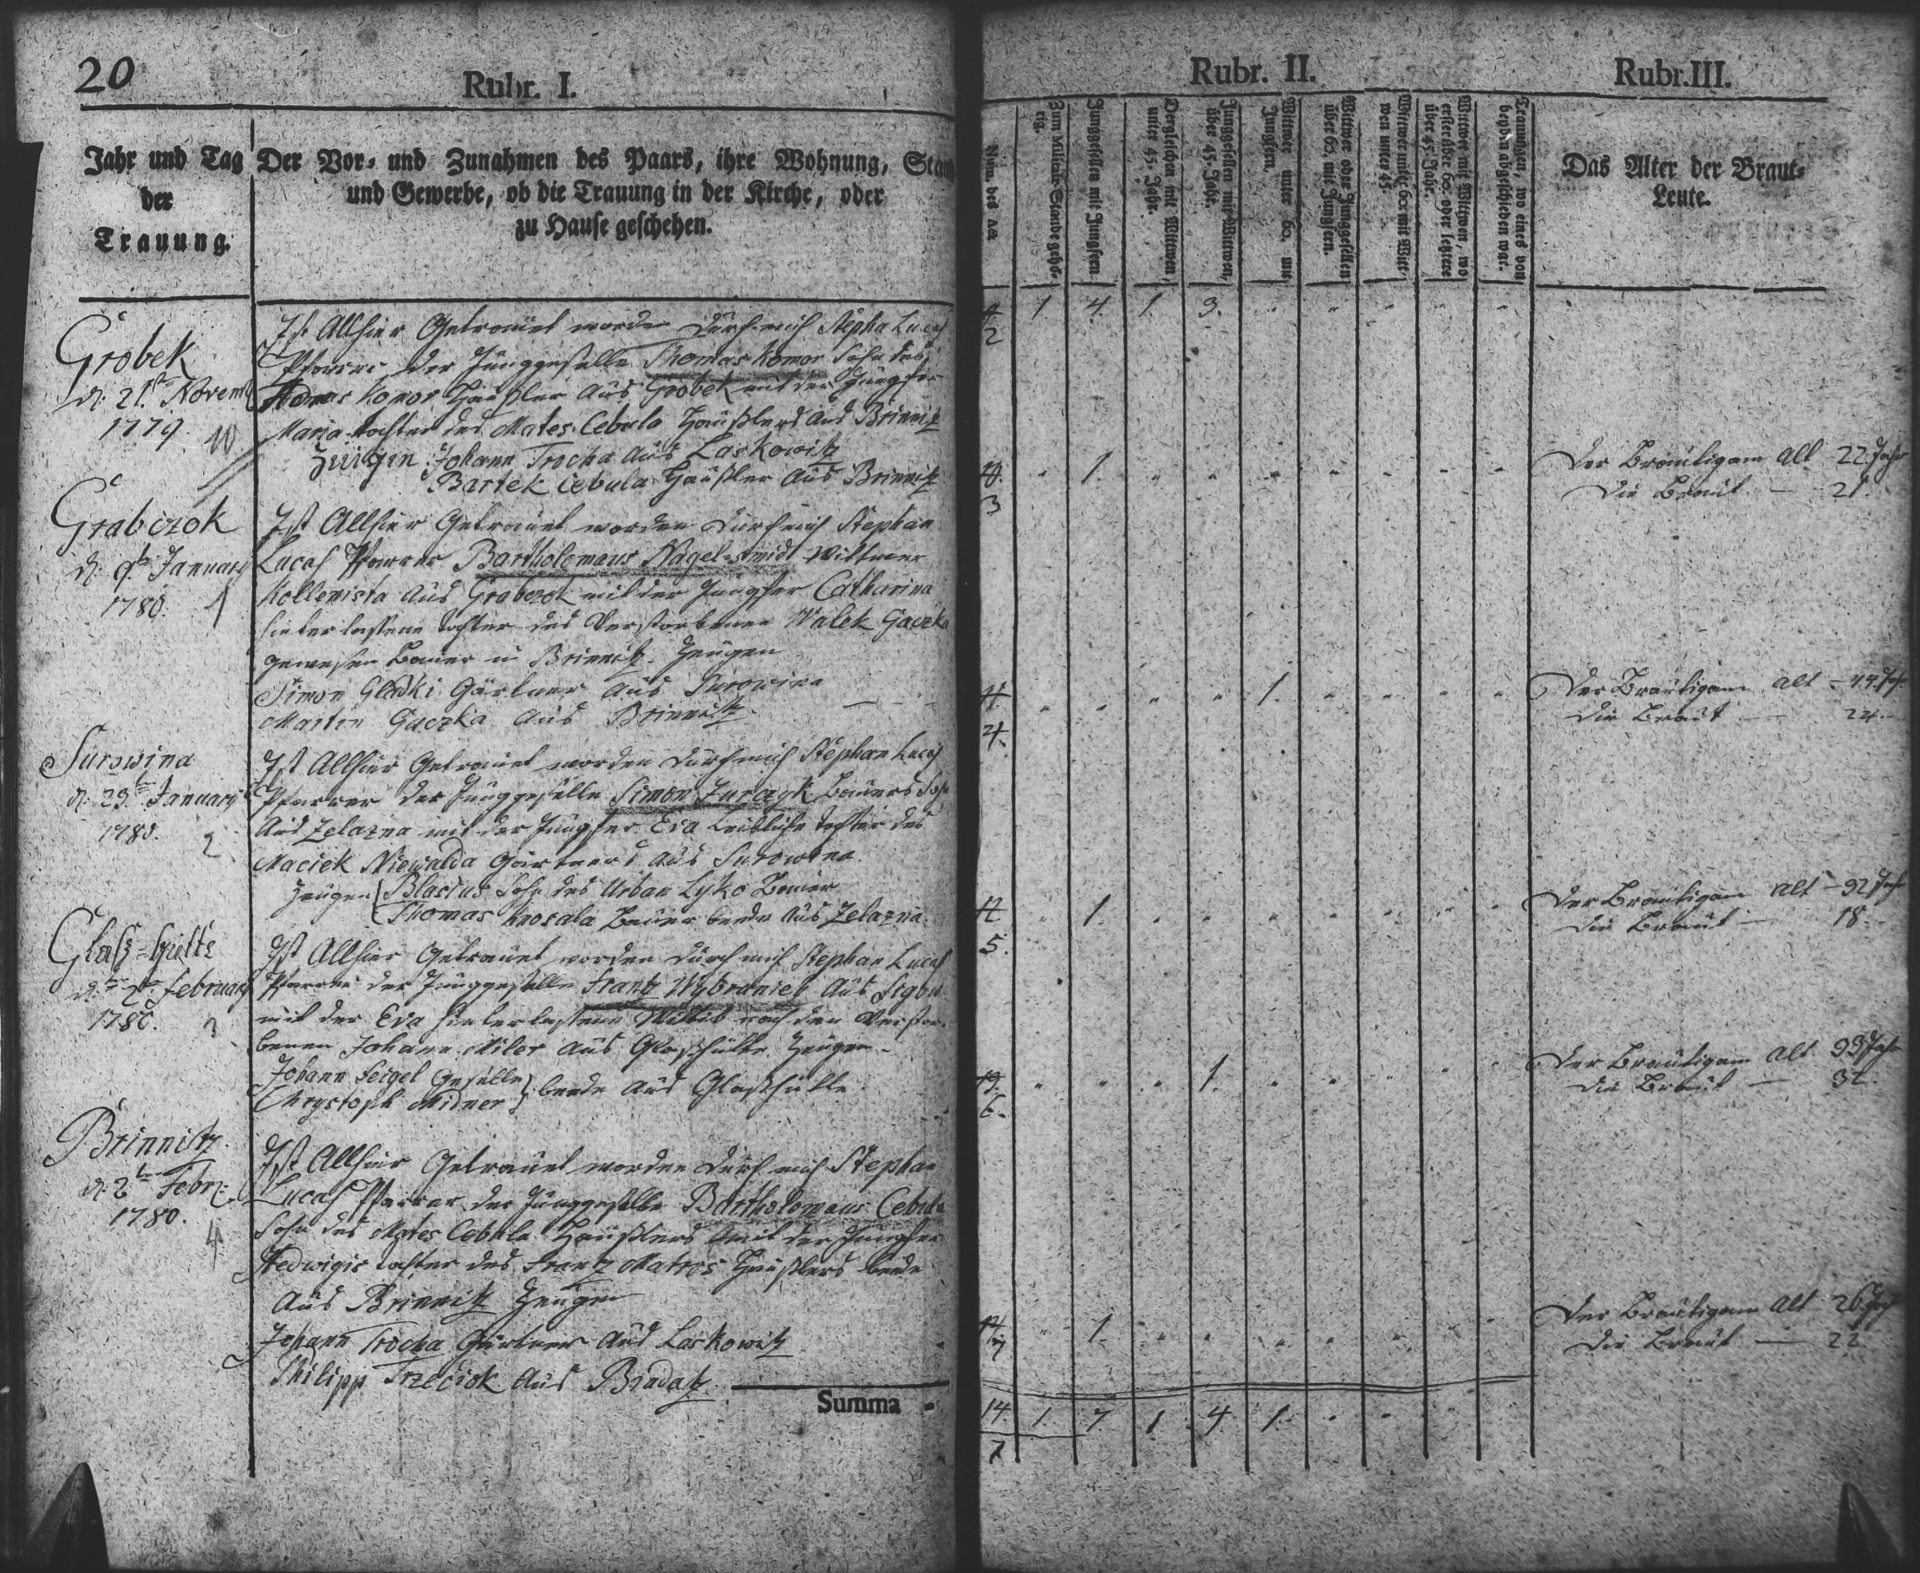 20
Rubr. I.
Jahr und Tag
der
Trauung.
Der Vor- und Zunahmen des Paars, ihre Wohnung,
und Gewerbe, ob die Trauung in der Kirche, oder
zu Hause geschehen.
Grobek
d. 21t Novemb
1779. 10
Ist Allhier Getrauet worden durch mich Stepha Lucas
Pfarrer der Junggeselle Thomas Konor Sohn des
Konor Häußler aus Grobek mit der Jungfer
Maria tochter des Mates Cebula Häußlers aus Brinnitz
Zeugen Johann Trocha aus Laskowitz
Bartek Cebula Häußler aus Brinnitz
Grabczok
d. 9t January
1780. 1
Ist Allhier Getrauet worden durch mich Stephan
Lucas Pfarrer Bartholomaus Nagelsmidt Wittwer
Kollonista aus Grabczok mit der Jungfer Catharina
hinterlassene tochter des Verstorbenen Walek Gaczka
gewesen Bauer in Brinnitz. Zeugen
Simon Gladki Gärtner aus Surowina
Martin Gaczka aus Brinnitz
Surowina
d. 23t January
1780. 2
Ist Allhier Getrauet worden durch mich Stephan Lucas
Pfarrer der Junggeselle Simon Jurczyk Bauers Sohn
aus Zelazna mit der Jungfer Eva Leibliche tochter des
Maciek Niewalda Gärtners aus Surowina.
Zeugen Blasius Sohn des Urban Lyko Bauer
Thomas Krosala Bauer beede aus Zelazna.
Glaß-hütte
d. 2t February
1780. 3
Ist Allhier Getrauet worden durch mich Stephan Lucas
Pfarrer der Junggeselle Frantz Wybraniec aus
mit der Eva hinterlassene Wittib nach den Verstor-
benen Johann Miler aus Glaßhütte Zeugen
Johann Seigel Geselle
Chrystoph Midner } beede aus Glaßhütte
Brinnitz.
d. 2t Febr:
1780. 4
Ist Allhier Getrauet worden durch mich Stephan
Lucas Pfarrer der Junggeselle Bartholomaus Cebula
Sohn des Mates Cebula Häußlers mit der Jungfer
Hedwigis tochter des Frantz Matros Häußlers beede
aus Brinnitz Zeugen
Johann Trocha Gärtner aus Laskowitz
Philipp Trzeciok aus Brodatz
Summa -
Rubr. II.
Zum Militair-Stande gehö-
rig.
Junggesellen mit Jungfern
Dergleichen mit Wittwen,
unter 45. Jahr.
Junggesellen mit Wittwen,
über 45. Jahr.
Wittwer unter 60. mit
Jungfern.
Wittwer oder Junggesellen
über 60. mit Jungfern.
Wittwer unter 60. mit Witt-
wen unter 45.
Wittwer mit Wittwen, wo
erster über 60. oder letztere
über 45. Jahr.
Trauungen, wo eines von
beyden abgeschieden war.
2 1 4 1 3
3 1
4 1
5 1
6 1
7 1
14 1 7 1 4 1
7
Rubr.III.
Das Alter der Braut-
Leute.
Der Bräutigam alt 22 Jahr
Die Braut — 21.
Der Bräutigam alt - 44 Jahr
Die Braut — 24
Der Bräutigam alt - 32 Jahr
Die Braut — 18
Der Bräutigam alt 33 Jahr
Die Braut — 32
Der Bräutigam alt 26 Jahr
Die Braut — 22